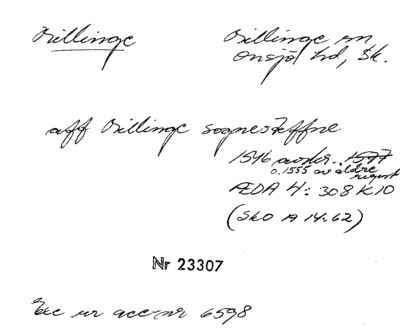 Billinge Billinge sn
Onsjö hd, Sk.
aff Billinge sognesteffne
1546 avskr. 1597
o. 1555 av äldre
regest
ÆDA 4: 308 K10
(SkO A 14:62)
Nr 23307
Exc ur acc nr 6598